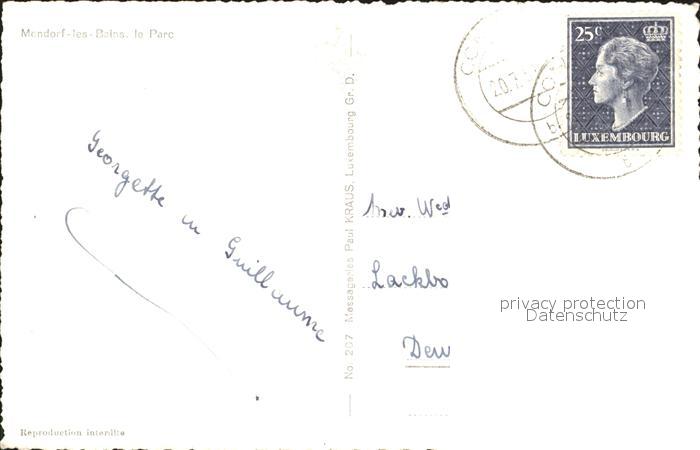 Mondorf-les-Bains, le Parc
25c
LUXEMBOURG
Georgette en Guillaume
No. 207 Messageries Paul KRAUS, Luxembourg Gr. D.
Mev. Wed
Lackbo
Dew
privacy protection
Datenschutz
Reproduction interdite